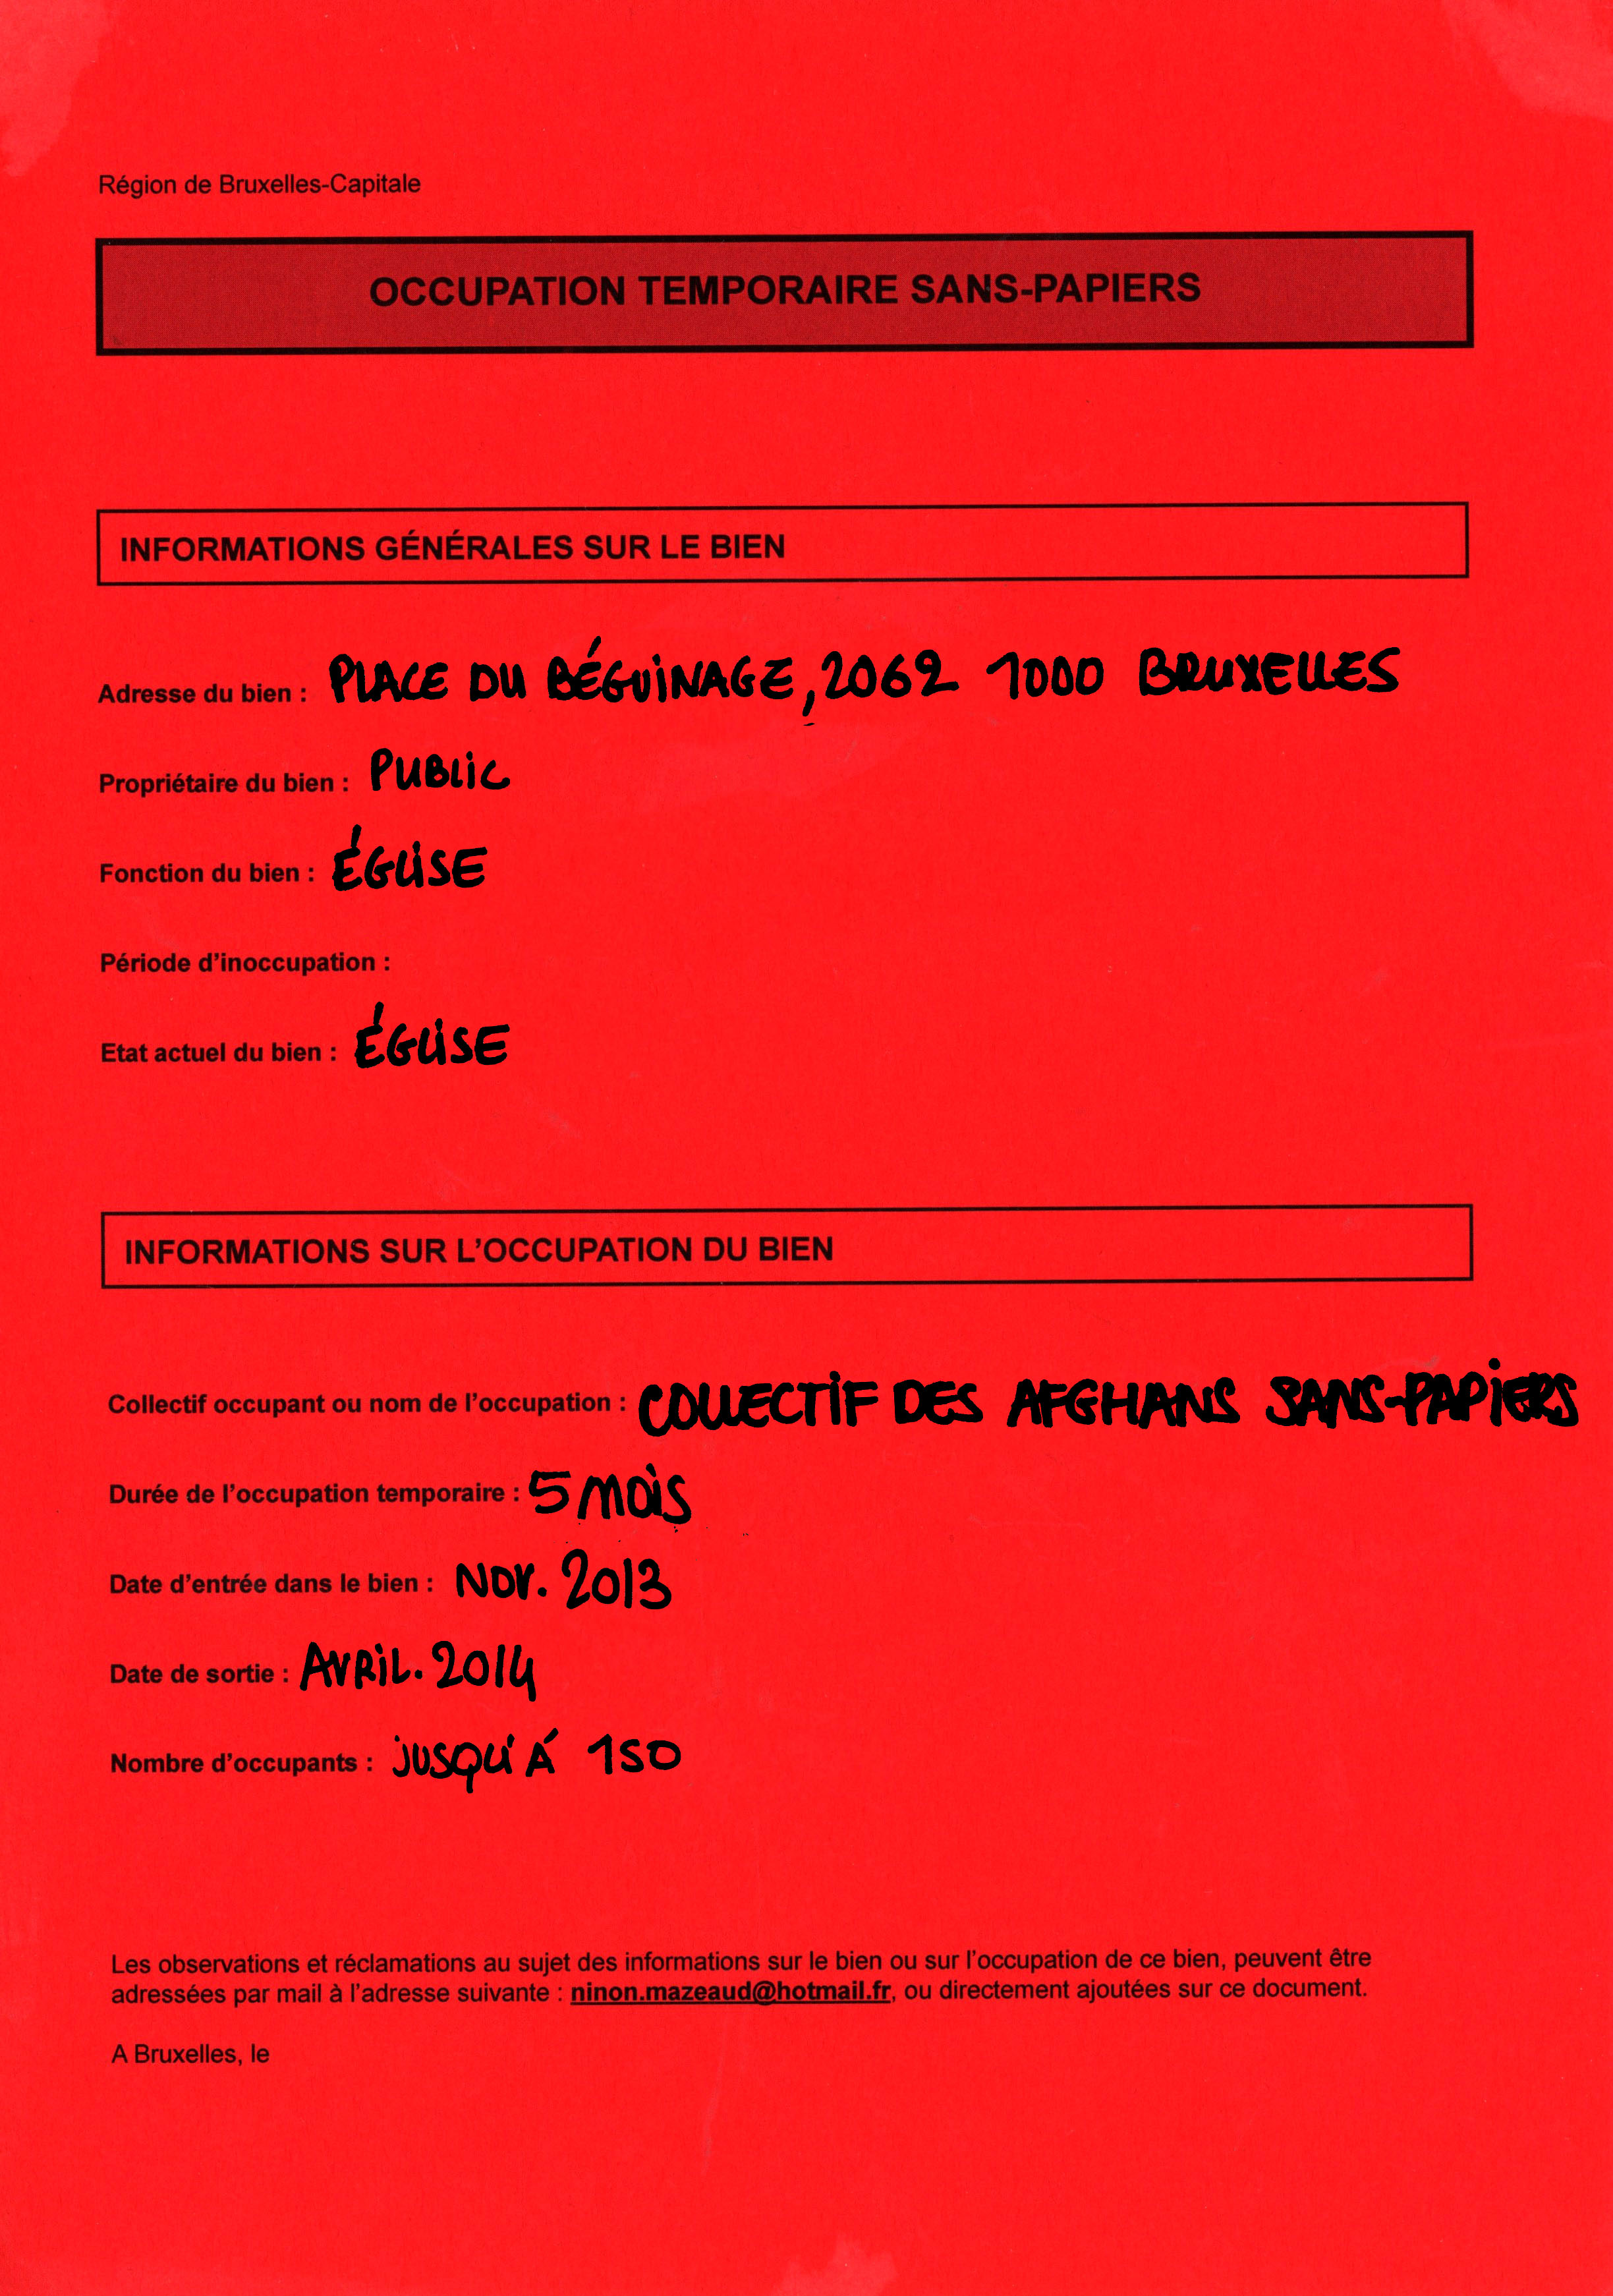 Région de Bruxelles-Capitale
OCCUPATION TEMPORAIRE SANS-PAPIERS
INFORMATIONS GÉNÉRALES SUR LE BIEN
Adresse du bien : PLACE DU BÉGUINAGE, 2062 1000 BRUXELLES
Propriétaire du bien : PUBLIC
Fonction du bien : ÉGLISE
Période d'inoccupation :
Etat actuel du bien : ÉGLISE
INFORMATIONS SUR L'OCCUPATION DU BIEN
Collectif occupant ou nom de l'occupation : COLLECTIF DES AFGHANS SANS-PAPIERS
Durée de l'occupation temporaire : 5 MOIS
Date d'entrée dans le bien : NOV. 2013
Date de sortie : AVRIL. 2014
Nombre d'occupants : JUSQU'Á 150
Les observations et réclamations au sujet des informations sur le bien ou sur l'occupation de ce bien, peuvent être
adressées par mail à l'adresse suivante : ninon.mazeaud@hotmail.fr, ou directement ajoutées sur ce document.
A Bruxelles, le